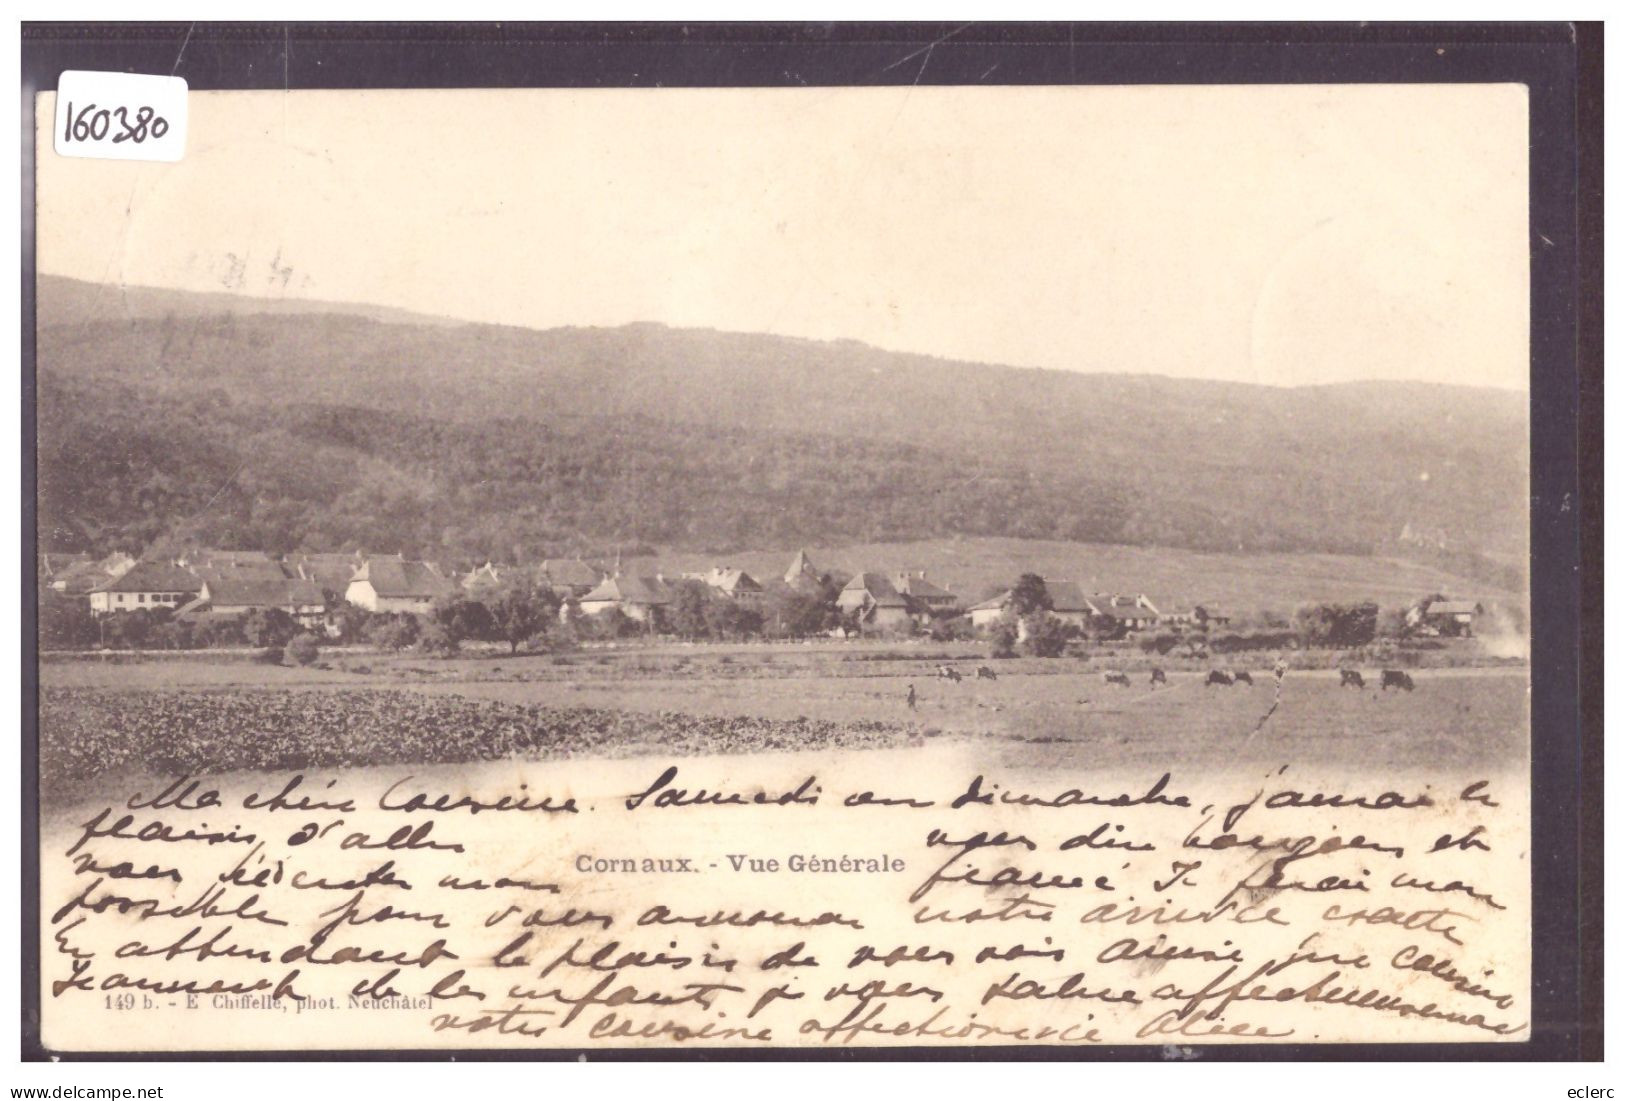 160380
Ma chère Cousine. Samedi ou dimanche, j'aurai le
plaisir d'aller vous dire bonjour et
vous
Cornaux. - Vue Générale
fiancé. Je ferai mon
possible pour vous annoncer notre arrivée
En attendant le plaisir de vous voir ainsi que Cousine
Jeanneret de les enfants je vous salue affectueusement
149 b. - E Chiffelle, phot. Neuchâtel
votre cousine affectionnée Alice.
eclerc